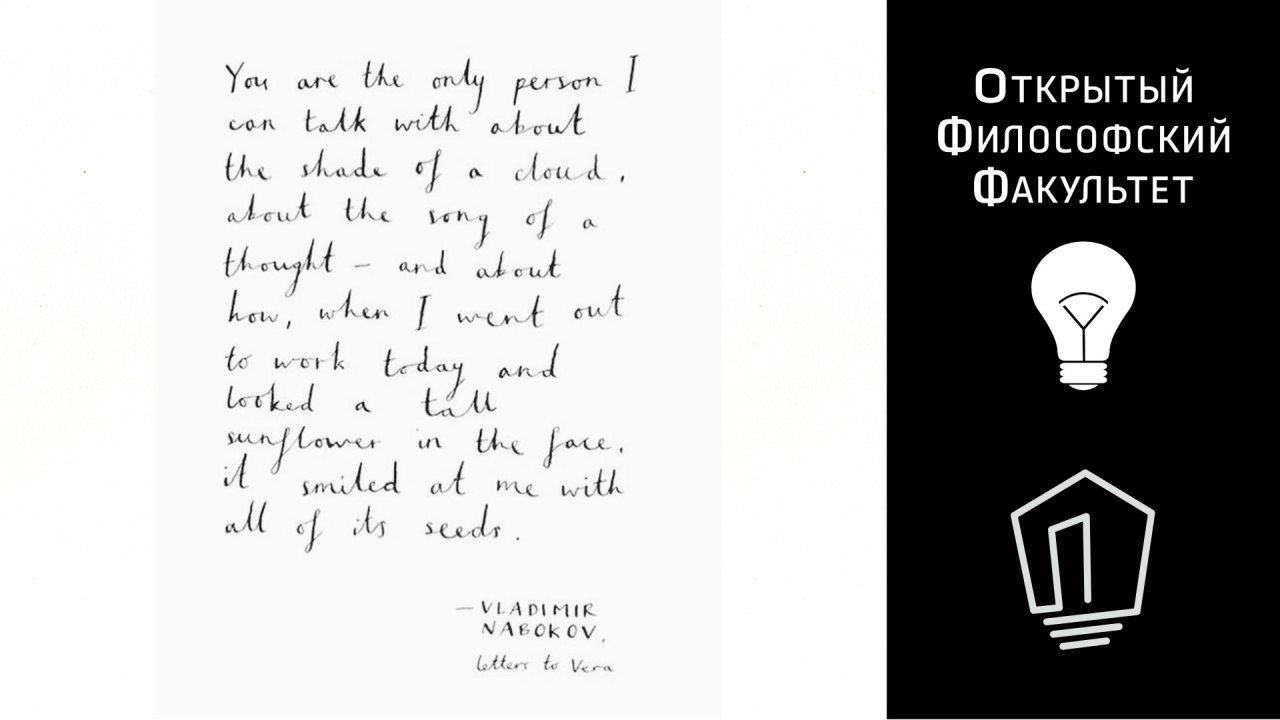 You are the only person I
can talk with about
the shade of a cloud,
about the song of a
thought – and about
how, when I went out
to work today and
looked a tall
sunflower in the face,
it smiled at me with
all of its seeds.
— VLADIMIR
NABOKOV,
letters to Vera
Открытый
Философский
Факультет